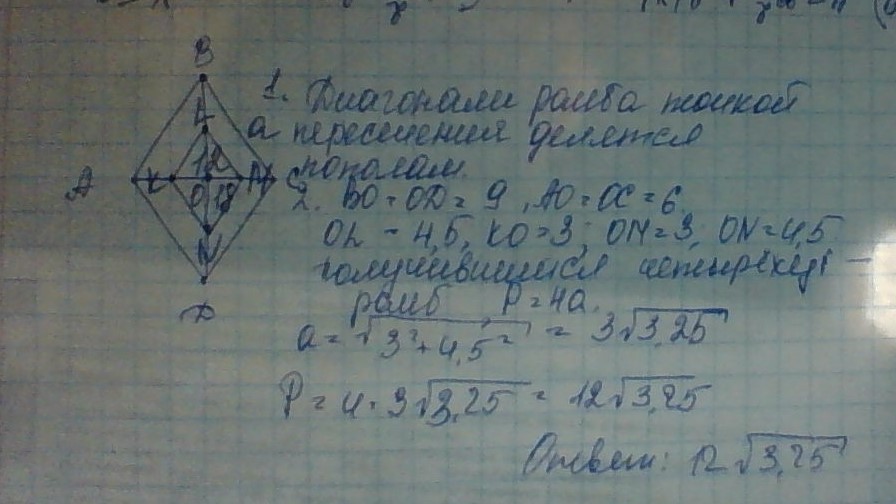 B
L
a
12
A K O 18 M C
N
D
1. Диагонали ромба точкой
пересечения делятся
пополам.
2. BO = OD = 9, AO = OC = 6
OL = 4,5, KO = 3; OM = 3; ON = 4,5
получившийся —
ромб, P = 4a.
a = √(3² + 4,5²) = 3√3,25
P = 4 · 3√3,25 = 12√3,25
Ответ: 12√3,25